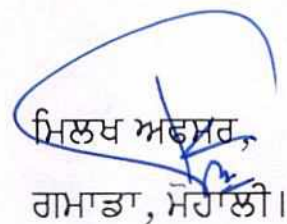 ਮਿਲਖ ਅਫਸਰ,
ਗਮਾਡਾ, ਮੋਹਾਲੀ।